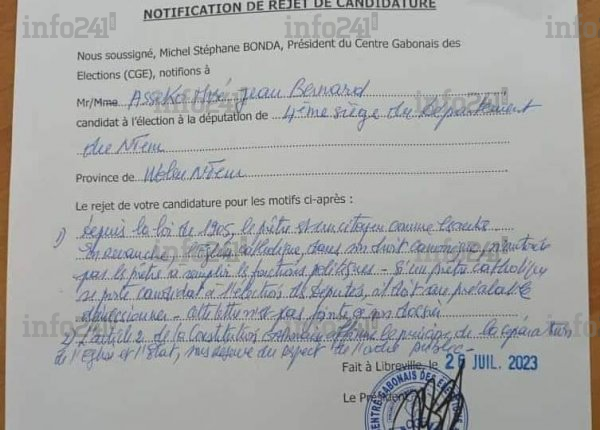 NOTIFICATION DE REJET DE CANDIDATURE
Nous soussigné, Michel Stéphane BONDA, Président du Centre Gabonais des
Elections (CGE), notifions à
Mr/Mme Asseko Mvé Jean Bernard
candidat à l'élection à la députation de 4ème siège du Département
du Ntem
Province de Woleu Ntem
Le rejet de votre candidature pour les motifs ci-après :
1) depuis la loi de 1905, le prêtre est un citoyen comme les autres
En revanche, l'Eglise catholique, dans son droit canonique, n'autorise
pas le prêtre à remplir les fonctions politiques - Si un prêtre catholique
se porte candidat à l'élection des Députés, il doit au préalable
démissionner -
2) L'article 2 de la Constitution le principe de la séparation
de l'Eglise et l'Etat, sous réserve du respect de l'ordre public -
Fait à Libreville, le 26 JUIL. 2023
Le Président
CENTRE GABONAIS DES ELECTIONS
info241